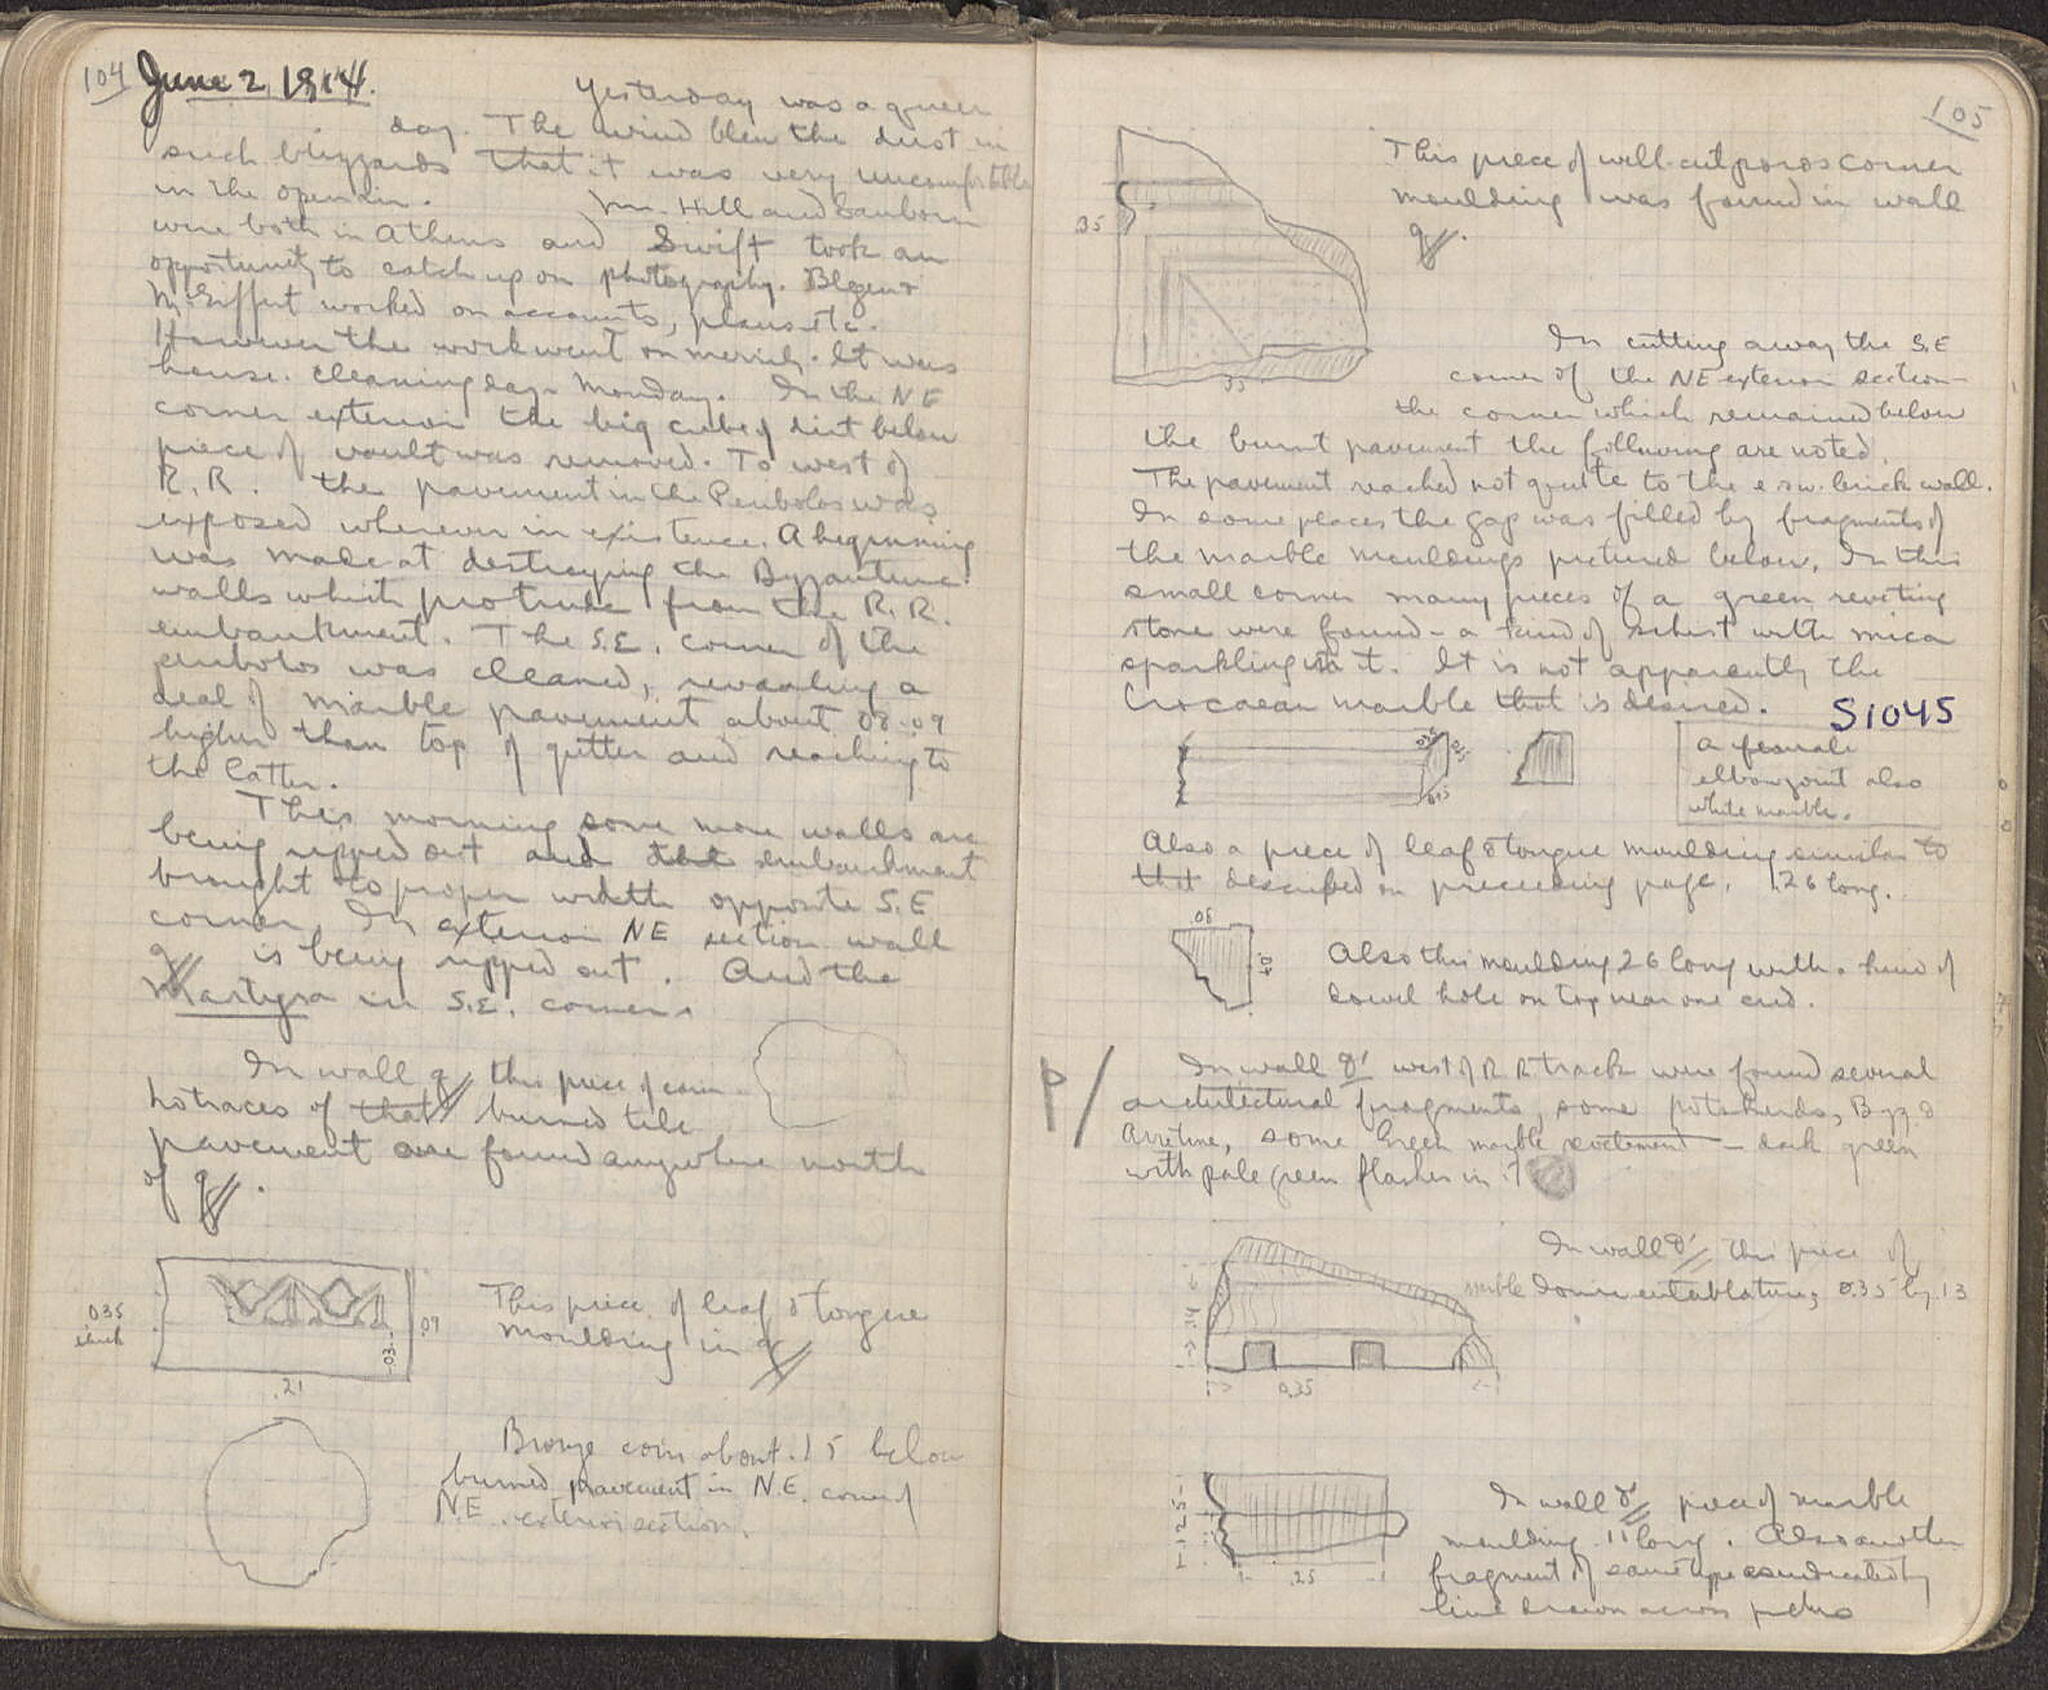 104 June 2, 1914.
Yesterday was a queer
day. The wind blew the dust in
such blizzards that it was very uncomfortable
in the open air. Mr. Hill and Sanborn
were both in Athens and Swift took an
opportunity to catch up on photography. Blegen &
McGiffert worked on accounts, plans etc.
However the work went on merrily. It was
house-cleaning day - Monday. In the NE
corner exterior the big cube of dirt below
piece of vault was removed. To west of
R.R. the pavement in the Peribolos was
exposed wherever in existence. A beginning
was made at destroying the Byzantine
walls which protrude from the R.R.
embankment. The S.E. corner of the
peribolos was cleaned, revealing a
deal of marble pavement about 08-.09
higher than top of gutter and reaching to
the latter.
This morning some more walls are
being ripped out and the embankment
brought to proper width opposite S.E
corner. In exterior NE section wall
q is being ripped out. And the
Martyra in S.E. corner.
In wall q this piece of coin
No traces of that burned tile
pavement are found anywhere north
of q.
035
thick
.09
.03
.21
This piece of leaf & tongue
moulding in q
Bronze coin about .15 below
burned pavement in N.E. corner of
N.E. exterior section.
105
This piece of well-cut poros corner
moulding was found in wall
q.
35
35
In cutting away the S.E
corner of the NE exterior section -
the corner which remained below
the burnt pavement the following are noted.
The pavement reached not quite to the e & w. brick wall.
In some places the gap was filled by fragments of
the marble mouldings pictured below. In this
small corner many pieces of a green reveting
stone were found - a kind of schist with mica
sparkling in it. It is not apparently the
Crocaean marble that is desired.
S1045
a female
elbow joint also
white marble.
Also a piece of leaf & tongue moulding similar to
that described on preceeding page. .26 long.
.08
Also this moulding 26 long with a kind of
dowel hole on top near one end.
P/
In wall d' west of R.R. track were found several
architectural fragments, some potsherds, Byz. &
Arretine, some Green marble revetement - dark green
with pale green flashes in it
In wall d' this piece of
marble Doric entablature, 0.35 by .13
.14
0.35
In wall d' piece of marble
moulding .11 long. Also another
fragment of same type as indicated by
line drawn across
.125
.25